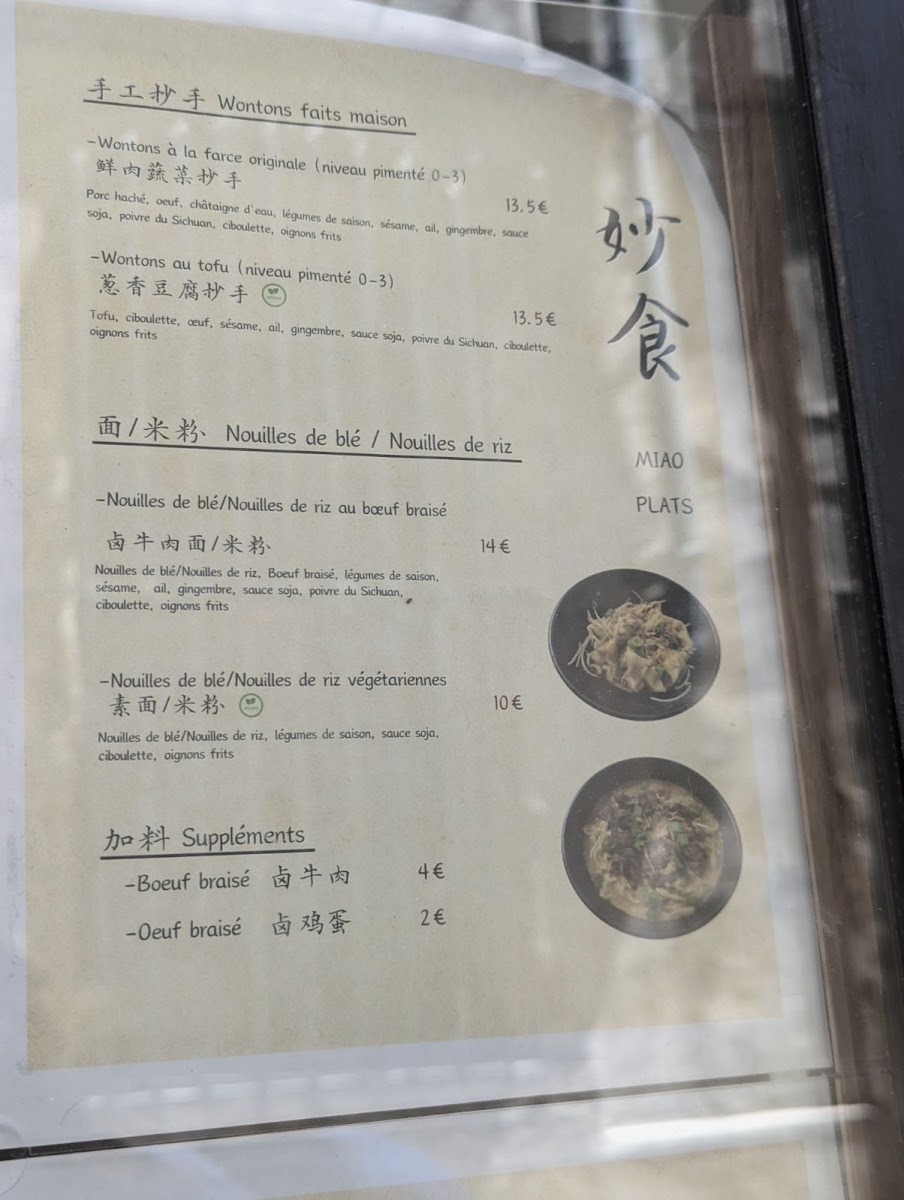 手工抄手 Wontons faits maison
-Wontons à la farce originale (niveau pimenté 0-3)
鲜肉蔬菜抄手
13.5€
Porc haché, oeuf, châtaigne d'eau, légumes de saison, sésame, ail, gingembre, sauce
soja, poivre du Sichuan, ciboulette, oignons frits
-Wontons au tofu (niveau pimenté 0-3)
葱香豆腐抄手
13.5€
Tofu, ciboulette, œuf, sésame, ail, gingembre, sauce soja, poivre du Sichuan, ciboulette,
oignons frits
面/米粉 Nouilles de blé / Nouilles de riz
-Nouilles de blé/Nouilles de riz au bœuf braisé
卤牛肉面/米粉 14€
Nouilles de blé/Nouilles de riz, Boeuf braisé, légumes de saison,
sésame, ail, gingembre, sauce soja, poivre du Sichuan,
ciboulette, oignons frits
-Nouilles de blé/Nouilles de riz végétariennes
素面/米粉 10€
Nouilles de blé/Nouilles de riz, légumes de saison, sauce soja,
ciboulette, oignons frits
加料 Suppléments
-Boeuf braisé 卤牛肉 4€
-Oeuf braisé 卤鸡蛋 2€
妙
食
MIAO
PLATS